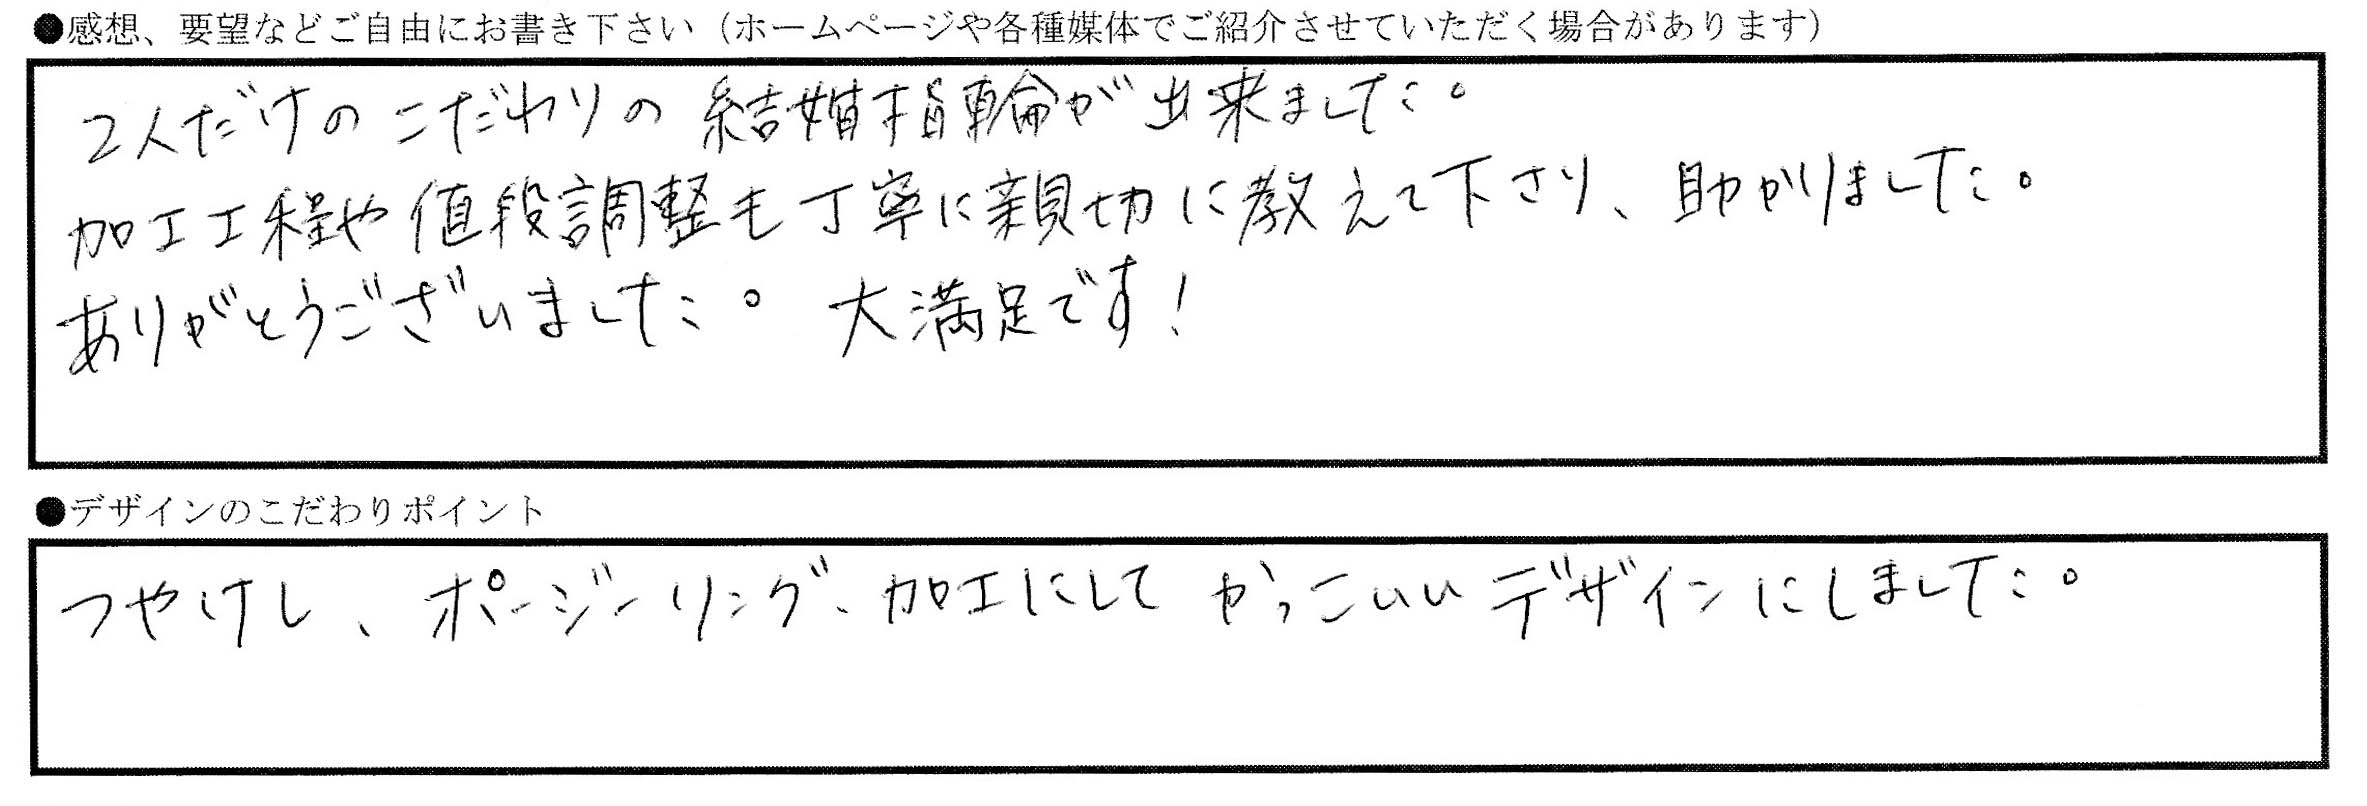 ●感想、要望などご自由にお書き下さい（ホームページや各種媒体でご紹介させていただく場合があります）
2人だけのこだわりの結婚指輪が出来ました。
加工工程や値段調整も丁寧に親切に教えて下さり、助かりました。
ありがとうございました。大満足です！
●デザインのこだわりポイント
つやけし、ポージーリング、加工にしてかっこいいデザインにしました。